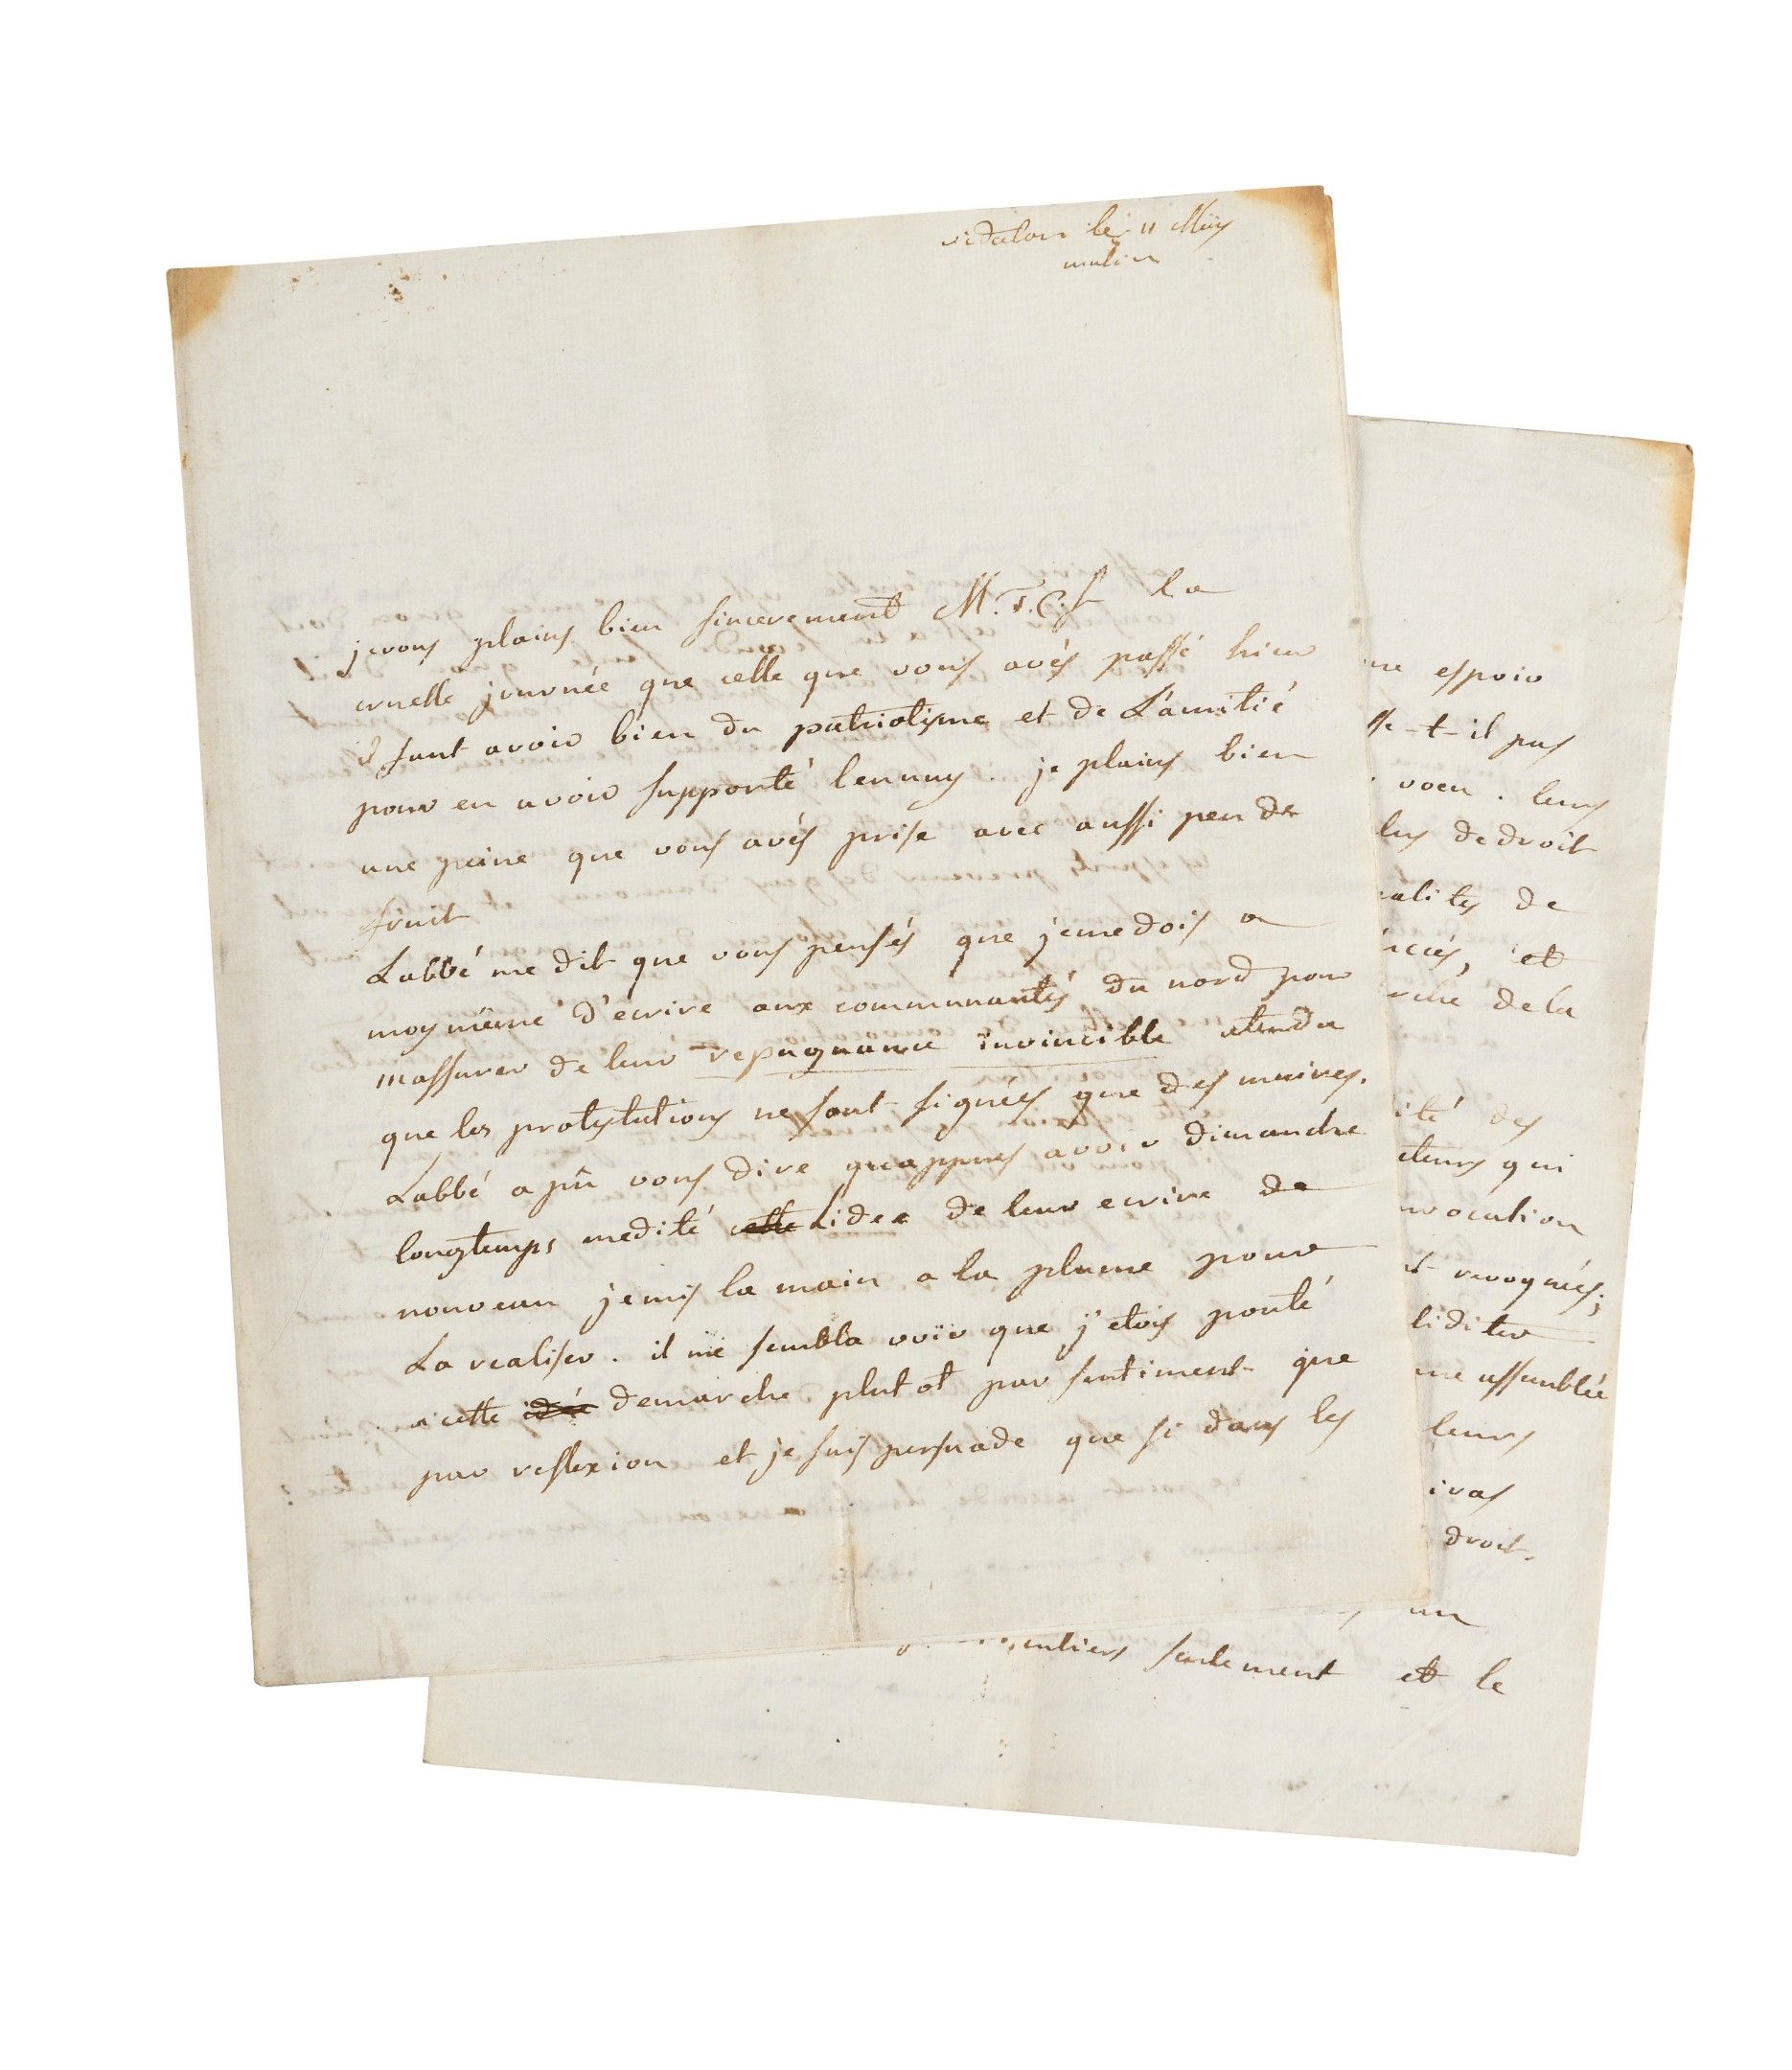 vidalon le 11 May
matin
je vous plains bien sincerement M.T.C.f la
cruelle journée que celle que vous avés passé hier
il faut avoir bien du patriotisme et de L'amitié
pour en avoir supporté lennuy. je plains bien
une peine que vous avés prise avec aussi peu de
fruit
Labbé me dit que vous pensés que je me dois a
moy même d'ecrire aux communautés du nord pour
massurer de leur repugnance invincible atendu
que les protestations ne sont signées que des maires.
Labbé a pû vous dire quappres avoir dimanche
longtemps medité cette Lidee de leur ecrire de
nouveau je mis la main a la plume pour
La realiser. il me sembla voir que j'etois porté
a cette idée demarche plutot par sentiment que
par reflexion et je suis persuade que si dans les
espoir
-t-il pas
voeu. leurs
de droit
de
et
de la
des
qui
revoqués;
une assemblée
leurs
droit.
un
seulement et le